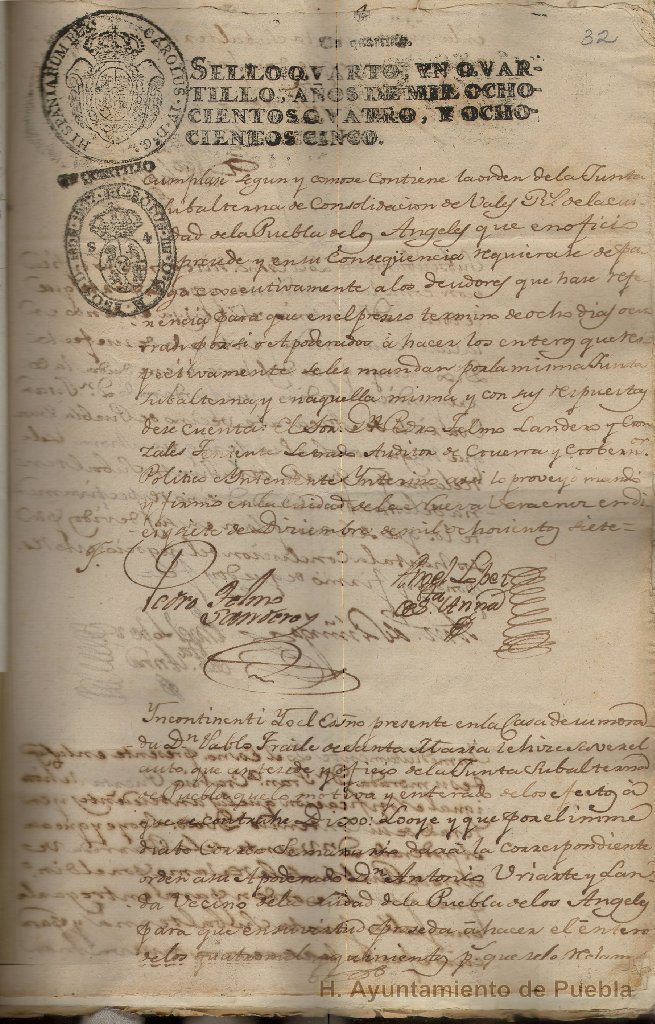 32
Un quartillo.
SELLO QVARTO, VN QVAR-
TILLO, AÑOS DE MIL OCHO-
CIENTOS QVATRO, Y OCHO-
CIENTOS CINCO.
HISPANIARUM REX CAROLUS IV D. G.
VN QUARTILLO
Cumplase segun y como se Contiene la orden de la Junta
Subalterna de Consolidacion de Vales Rs. de la ciu-
dad de la Puebla de los Angeles que en oficio
precede y en su Conseqüencia requierase de pa-
go executivamente a los deudores que hase refe-
rencia para que en el preciso termino de ocho dias ocu-
rran por si o Apoderados à hacer los enteros que res-
pectivamente se les mandan por la misma Junta
subalterna y en aquella misma y con sus respuestas
dese cuenta: El Sor. Dn. Pedro Telmo Landero y Gon-
zales Teniente Letrado Auditor de Guerra y Governor.
Politico è Yntendente Ynterino asi lo proveyó mandó
y firmó en la Ciudad de la Nueva Veracruz en di-
ez y siete de Diziembre de mil ochocientos siete =
Pedro Telmo
Landero
Angel Lopez
de Sta. Anna
Yncontinenti Yo el Esño presente en la Casa de su mora-
da Dn. Pablo Fraile de Santa Maria le hize saver el
auto que antecede y oficio de la Junta Subalterna
de Puebla que lo motiva y enterado de los efectos à
que se contrahe Dixo: Lo oye y que por el inme-
diato Correo Semanario dará la correspondiente
orden a su Apoderado Dn. Antonio Uriarte y Lan-
da Vecino de la ciudad de la Puebla de los Angeles
para que en su virtud proseda à hacer el entero
de los quatro mil y quinientos ps. que se lo reclama
H. Ayuntamiento de Puebla